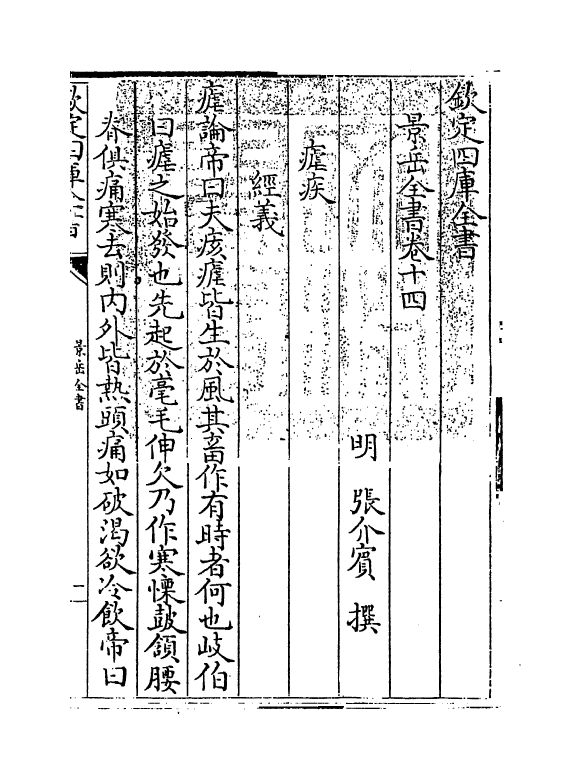 欽定四庫全書
景岳全書卷十四
明 張介賓 撰
瘧疾
經義
瘧論帝曰夫痎瘧皆生於風其畜作有時者何也岐伯
曰瘧之始發也先起於毫毛伸欠乃作寒慄鼓頷腰
脊俱痛寒去則內外皆熱頭痛如破渴欲冷飲帝曰
欽定四庫全書
景岳全書
一